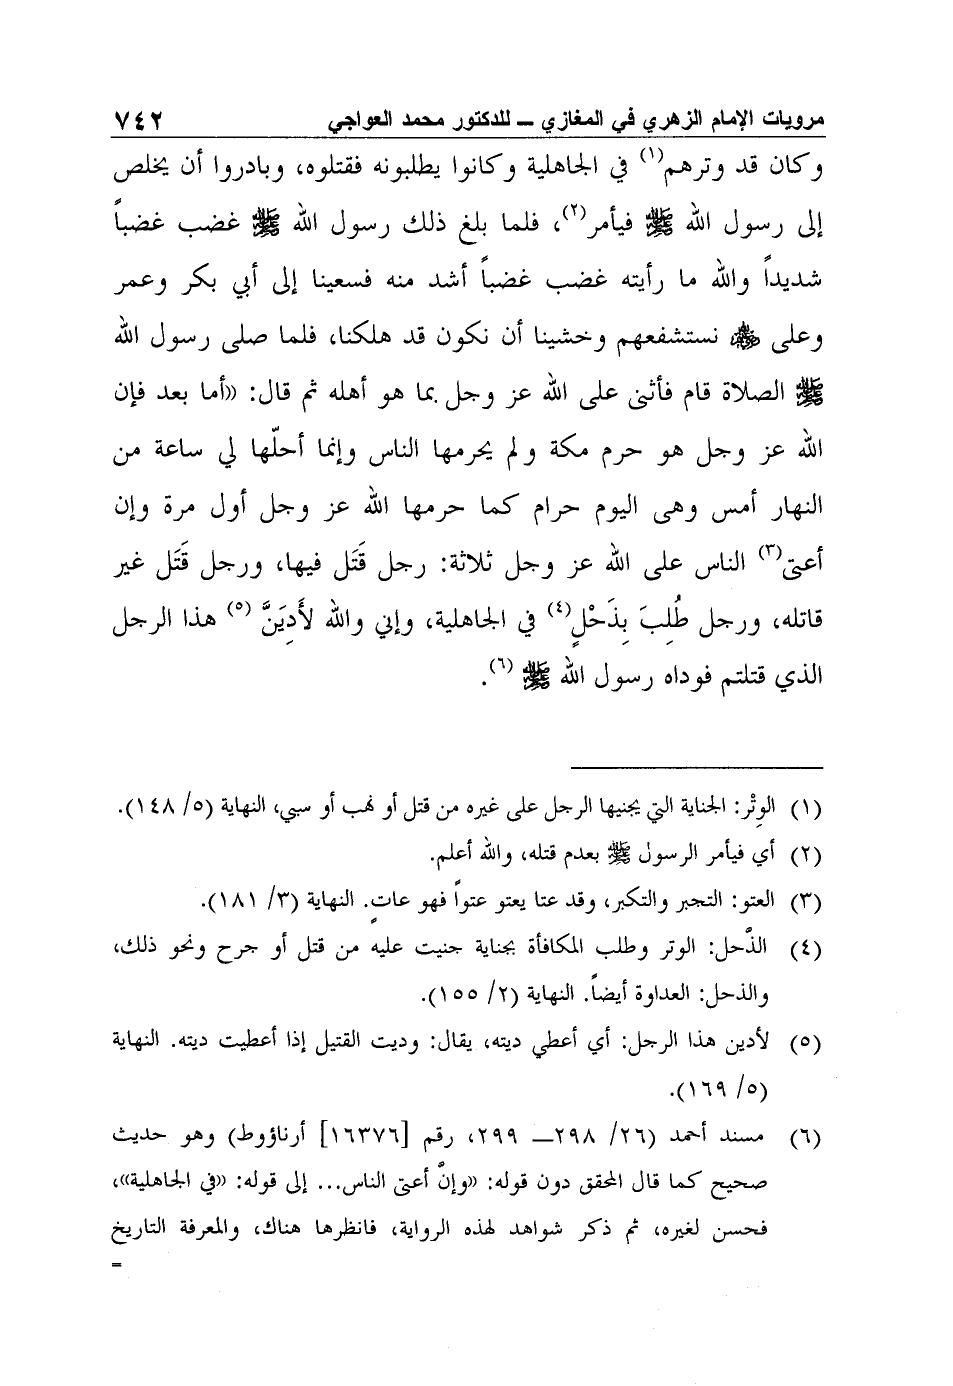 مرويات الإمام الزهري في المغازي ــ للدكتور محمد العواجي ٧٤٢
وكان قد وترهم(١) في الجاهلية وكانوا يطلبونه فقتلوه، وبادروا أن يخلص
إلى رسول الله ﷺ فيأمر(٢)، فلما بلغ ذلك رسول الله ﷺ غضب غضباً
شديداً والله ما رأيته غضب غضباً أشد منه فسعينا إلى أبي بكر وعمر
وعلى ﷺ نستشفعهم وخشينا أن نكون قد هلكنا، فلما صلى رسول الله
ﷺ الصلاة قام فأثنى على الله عز وجل بما هو أهله ثم قال: «أما بعد فإن
الله عز وجل هو حرم مكة ولم يحرمها الناس وإنما أحلّها لي ساعة من
النهار أمس وهى اليوم حرام كما حرمها الله عز وجل أول مرة وإن
أعتى(٣) الناس على الله عز وجل ثلاثة: رجل قَتَل فيها، ورجل قَتَل غير
قاتله، ورجل طُلِبَ بِذَحْلٍ(٤) في الجاهلية، وإني والله لأَدِيَنَّ(٥) هذا الرجل
الذي قتلتم فوداه رسول الله ﷺ(٦).
(١) الوِتْر: الجناية التي يجنيها الرجل على غيره من قتل أو نهب أو سبي، النهاية (٥/ ١٤٨).
(٢) أي فيأمر الرسول ﷺ بعدم قتله، والله أعلم.
(٣) العتو: التجبر والتكبر، وقد عتا يعتو عتواً فهو عاتٍ. النهاية (٣/ ١٨١).
(٤) الذَّحل: الوتر وطلب المكافأة بجناية جنيت عليه من قتل أو جرح ونحو ذلك،
والذحل: العداوة أيضاً. النهاية (٢/ ١٥٥).
(٥) لأدين هذا الرجل: أي أعطي ديته، يقال: وديت القتيل إذا أعطيت ديته. النهاية
(٥/ ١٦٩).
(٦) مسند أحمد (٢٦/ ٢٩٨ــ ٢٩٩، رقم [١٦٣٧٦] أرناؤوط) وهو حديث
صحيح كما قال المحقق دون قوله: «وإنَّ أعتى الناس... إلى قوله: «في الجاهلية»،
فحسن لغيره، ثم ذكر شواهد لهذه الرواية، فانظرها هناك، والمعرفة التاريخ
=